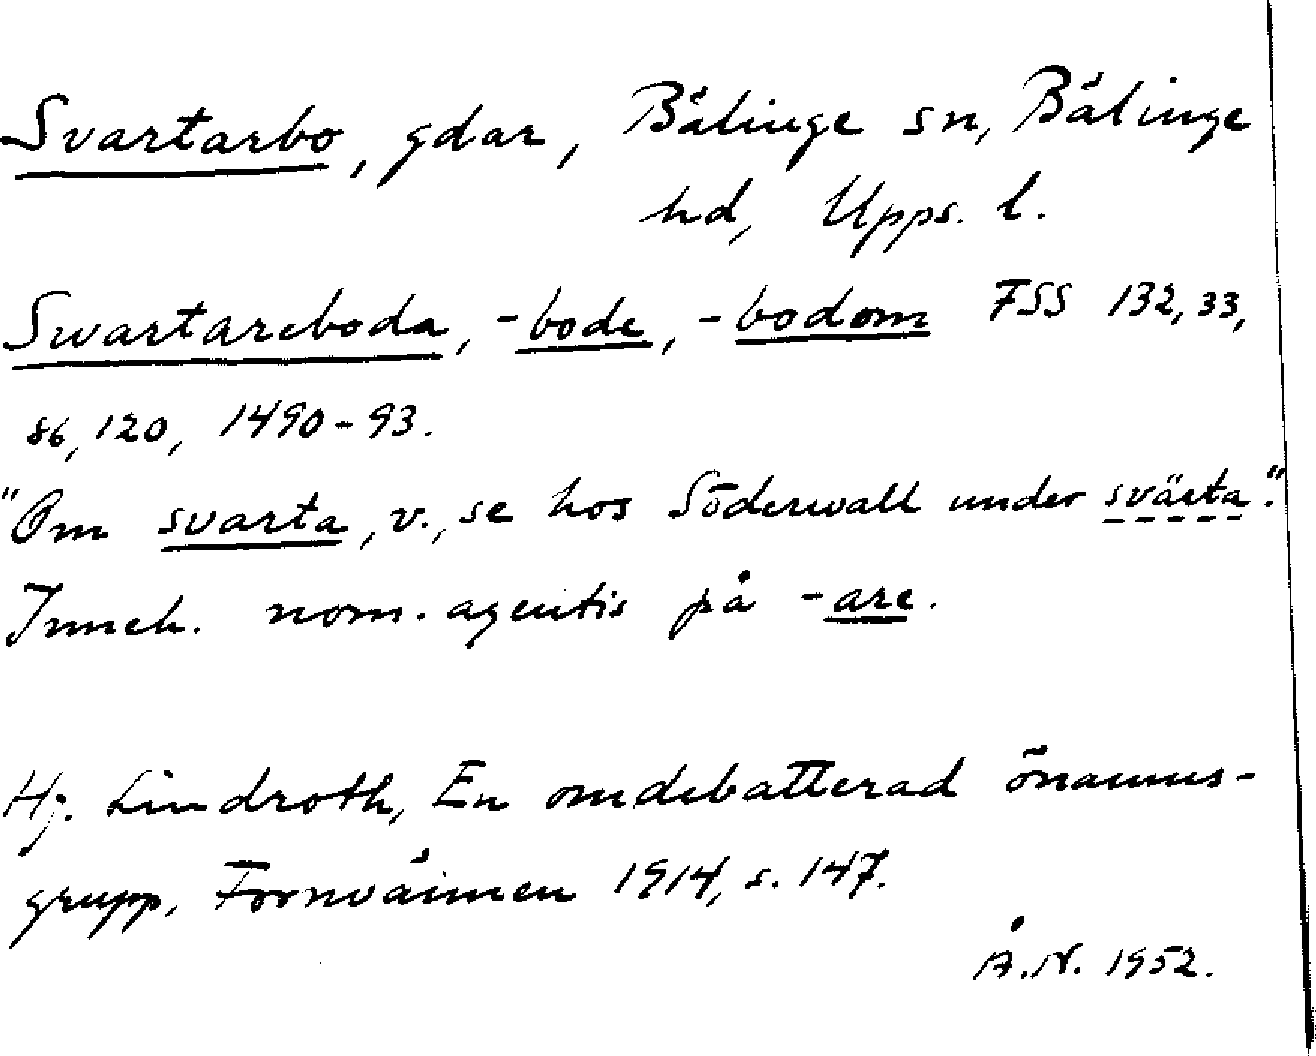 Svartarbo, gdar, Bälinge sn, Bälinge
hd, Upps. l.
Swartareboda, -bode, -bodom FSS 132, 33,
86, 120, 1490-93.
"Om svarta, v., se hos Söderwall under svärta".
Inneh. nom. agentis på -are.
Hj. Lindroth, En omdebatterad önamns-
grupp, Fornvännen 1914, s. 147.
Å.N. 1952.